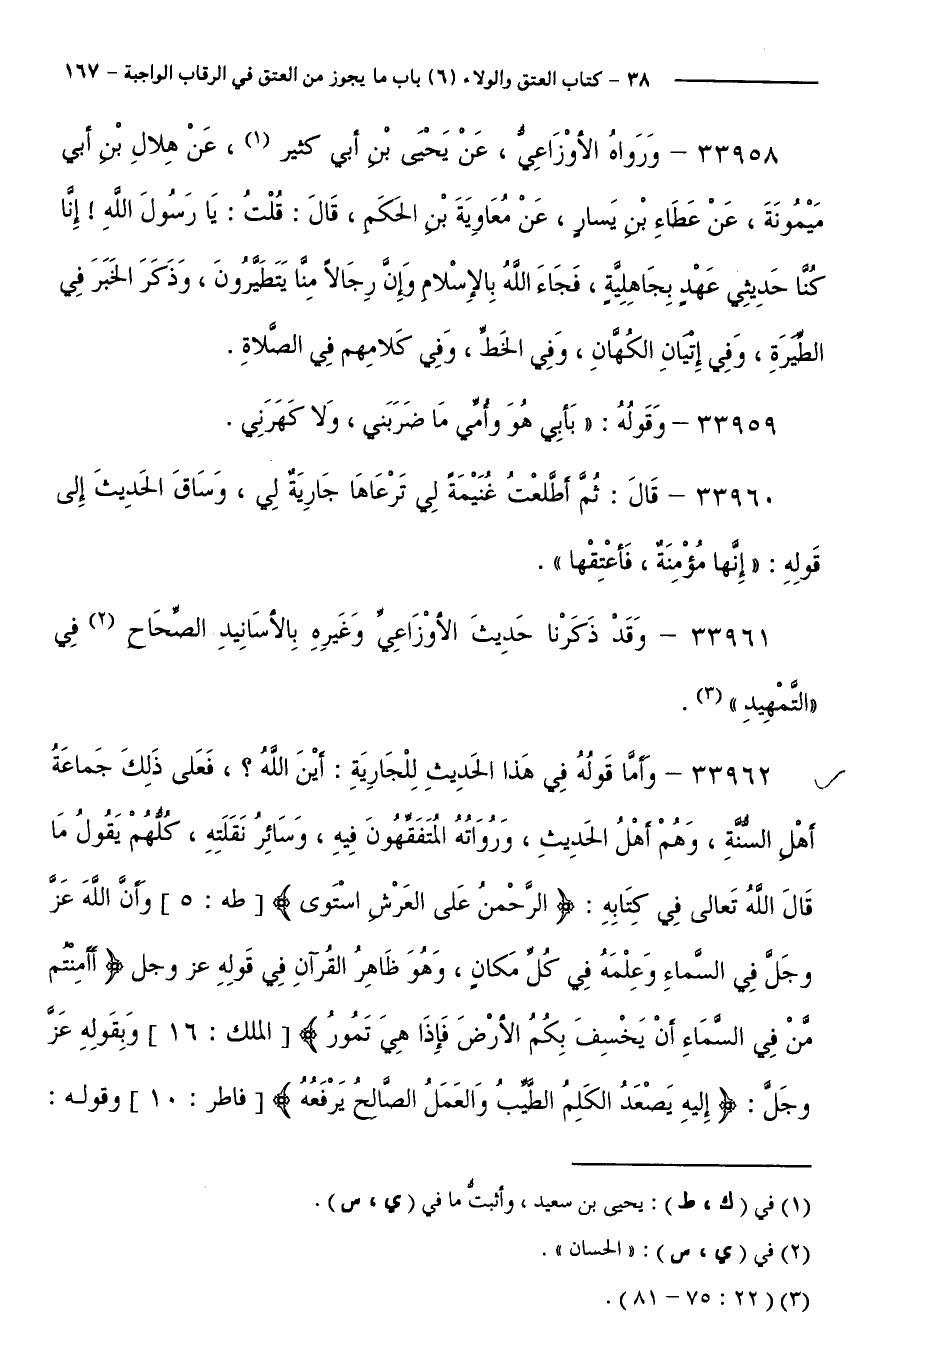 ٣٨ - كتاب العتق والولاء (٦) باب ما يجوز من العتق في الرقاب الواجبة - ١٦٧
٣٣٩٥٨ - وَرَوَاهُ الأوْزَاعِيُّ ، عَنْ يَحْيَى بْنِ أبي كثير (١) ، عَنْ هِلالِ بْنِ أبي
مَيْمُونَةَ ، عَنْ عَطَاءِ بْنِ يَسارٍ ، عَنْ مُعَاوِيَةَ بْنِ الحَكَمِ ، قَالَ : قُلْتُ : يَا رَسُولَ اللَّهِ ! إِنَّا
كُنَّا حَدِيثِي عَهْدٍ بِجَاهِلِيَّةٍ ، فَجَاءَ اللَّهُ بِالإِسْلامِ وَإِنَّ رِجَالاً مِنَّا يَتَطَيَّرُونَ ، وَذَكَرَ الخَبَرَ فِي
الطِّيَرَةِ ، وَفِي إِتْيَانِ الكُهَّانِ ، وَفِي الخَطِّ ، وَفِي كَلامِهِم فِي الصَّلاةِ .
٣٣٩٥٩ - وَقَولُهُ : « بَأبِي هُوَ وأُمِّي مَا ضَرَبَني ، وَلَا كَهَرَنِي .
٣٣٩٦٠ - قَالَ : ثُمَّ أطَّلَعْتُ غُنَيْمَةً لِي تَرْعَاهَا جَارِيَةٌ لِي ، وَسَاقَ الحَدِيثَ إِلى
قَولِهِ : « إِنَّها مُؤْمِنَةٌ ، فَأعْتِقْها » .
٣٣٩٦١ - وَقَدْ ذَكَرْنا حَدِيثَ الأوْزَاعِيِّ وَغَيرِهِ بِالأسَانِيدِ الصِّحَاحِ (٢) فِي
«التَّمْهِيدِ» (٣) .
٣٣٩٦٢ - وأمَّا قَولُهُ فِي هَذا الحَدِيثِ لِلْجَارِيَةِ : أيْنَ اللَّهُ ؟ ، فَعَلى ذَلِكَ جَماعَةُ
أهْلِ السُّنَّةِ ، وَهُمْ أهْلُ الحَدِيثِ ، وَرُوَاتُهُ المُتَفَقِّهُونَ فِيهِ ، وَسَائِرُ نَقَلَتِهِ ، كُلُّهُمْ يَقُولُ مَا
قَالَ اللَّهُ تَعالى فِي كِتَابِهِ : ﴿ الرَّحْمنُ عَلى العَرْشِ اسْتَوى ﴾ [ طه : ٥ ] وَأنَّ اللَّهَ عَزَّ
وجَلَّ فِي السَّماءِ وَعِلْمَهُ فِي كُلِّ مَكَانٍ ، وَهُوَ ظَاهِرُ القُرآنِ فِي قَولِهِ عز وجل ﴿ أَأَمِنْتُم
مَّنْ فِي السَّمَاءِ أنْ يَخْسِفَ بِكُمُ الأرْضَ فَإِذَا هِيَ تَمُورُ ﴾ [ الملك : ١٦ ] وَبِقَولِهِ عَزَّ
وجَلَّ : ﴿ إِليهِ يَصْعَدُ الكَلِمُ الطَّيِّبُ والعَمَلُ الصَّالِحُ يَرْفَعُهُ ﴾ [ فاطر : ١٠ ] وقوله :
(١) في ( ك ، ط ) : يحيى بن سعيد ، وأثبتُّ ما في ( ي ، س ) .
(٢) في ( ي ، س ) : « الحسان » .
(٣) ( ٢٢ : ٧٥ – ٨١ ) .